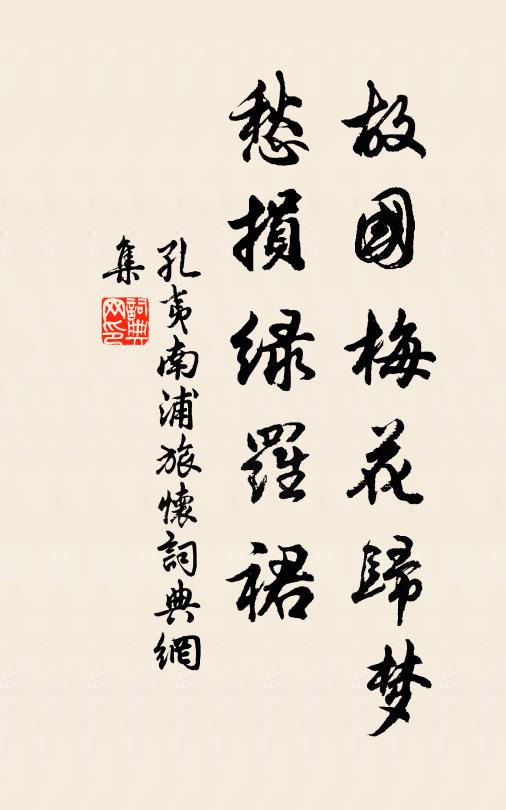 故國梅花歸梦
愁損绿羅裙
孔夷南浦旅懷詞典網
集
詞典
网印